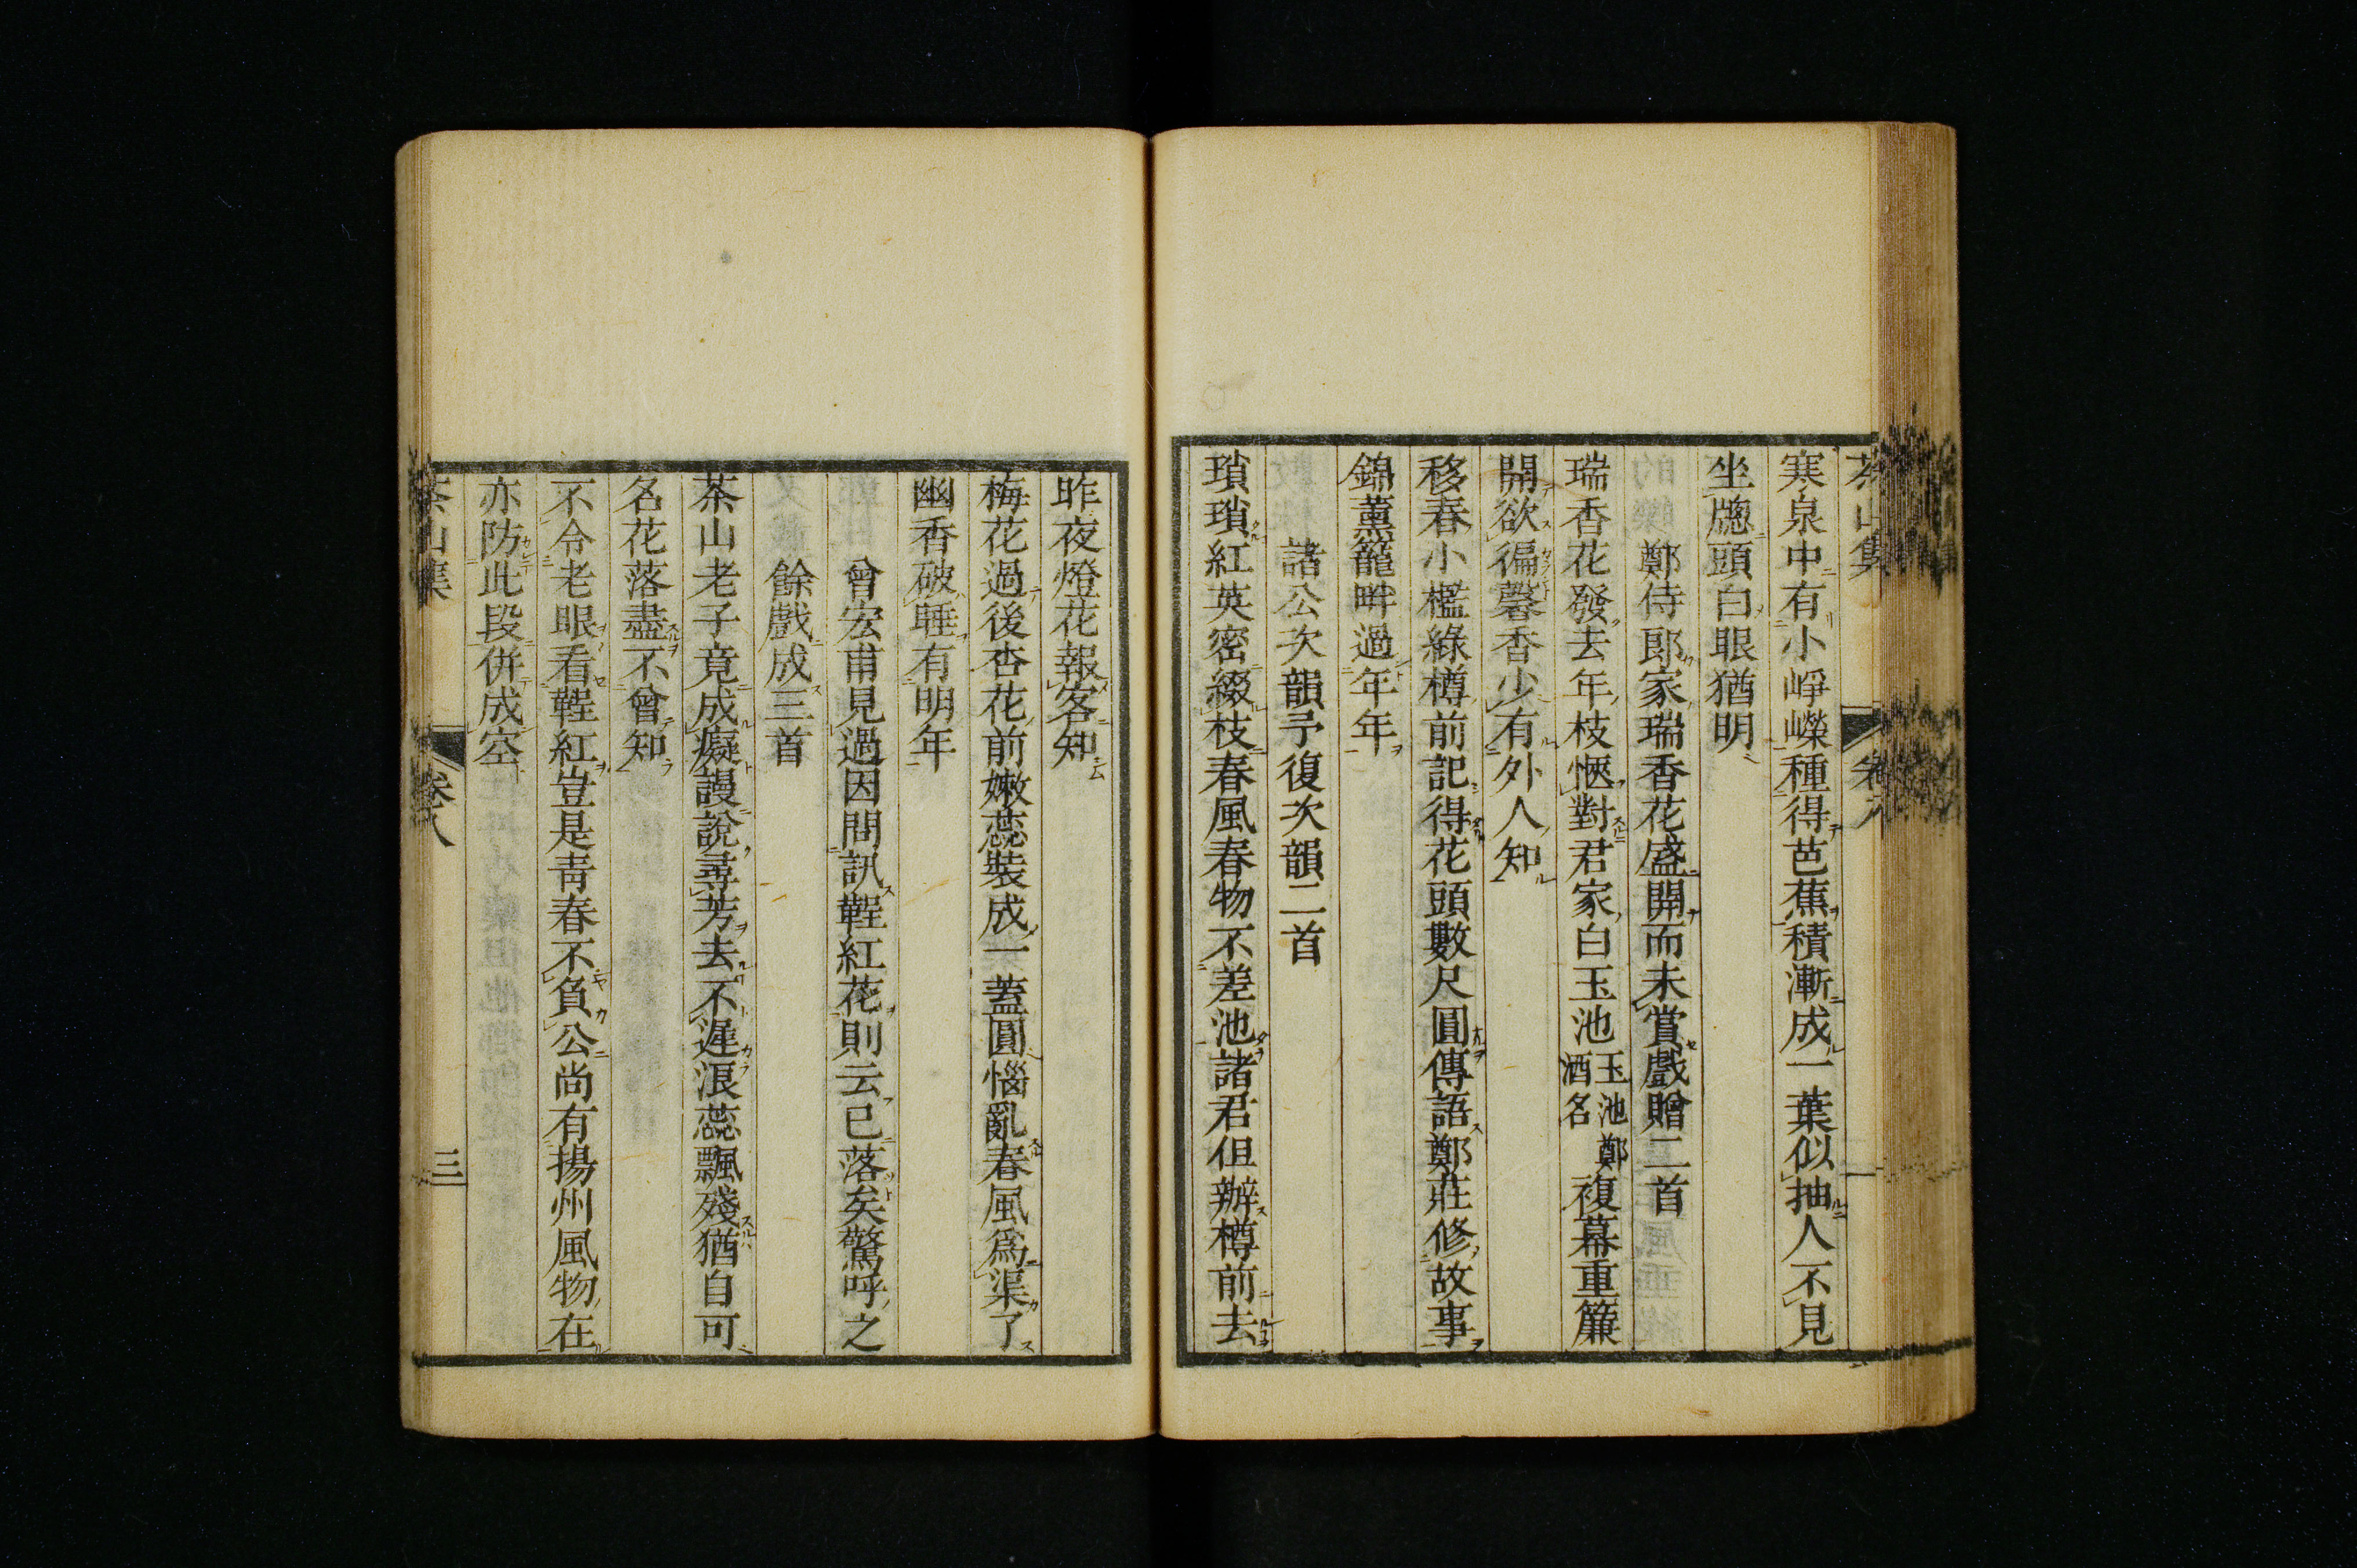 茶山集 卷八
寒泉中有小崢嶸種得芭蕉積漸成一葉似抽人不見
坐牕頭白眼猶明
鄭侍郎家瑞香花盛開而未賞戲贈二首
瑞香花發去年枝愜對君家白玉池玉池鄭酒名複幕重簾
開欲徧馨香少有外人知
移春小檻綠樽前記得花頭數尺圓傳語鄭莊修故事
錦薰籠畔過年年
諸公次韻予復次韻二首
瑣瑣紅英密綴枝春風春物不差池諸君但辦樽前去
昨夜燈花報客知
梅花過後杏花前嫩蕊裝成一蓋圓惱亂春風爲渠了
幽香破睡有明年
曾宏甫見過因問訊鞓紅花則云已落矣驚呼之
餘戲成三首
茶山老子竟成癡謾說尋芳去不遲浪蕊飄殘猶自可
名花落盡不曾知
不令老眼看鞓紅豈是青春不負公尚有揚州風物在
亦防此段併成空
茶山集 卷八 三